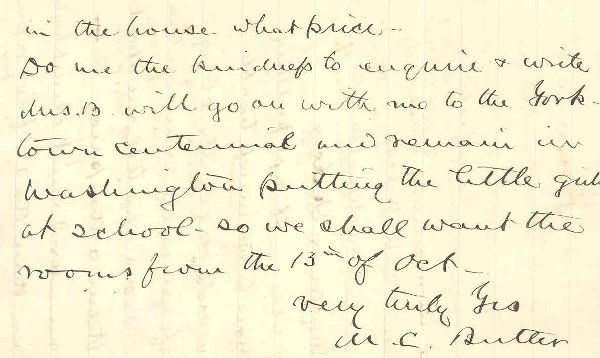 in the house. what price -
Do me the kindness to enquire & write
Mrs. B. will go on with me to the York-
town centennial and remain in
Washington putting the little girls
at school - so we shall want the
rooms from the 13th of Oct -
very truly Yrs
M. C. Butler